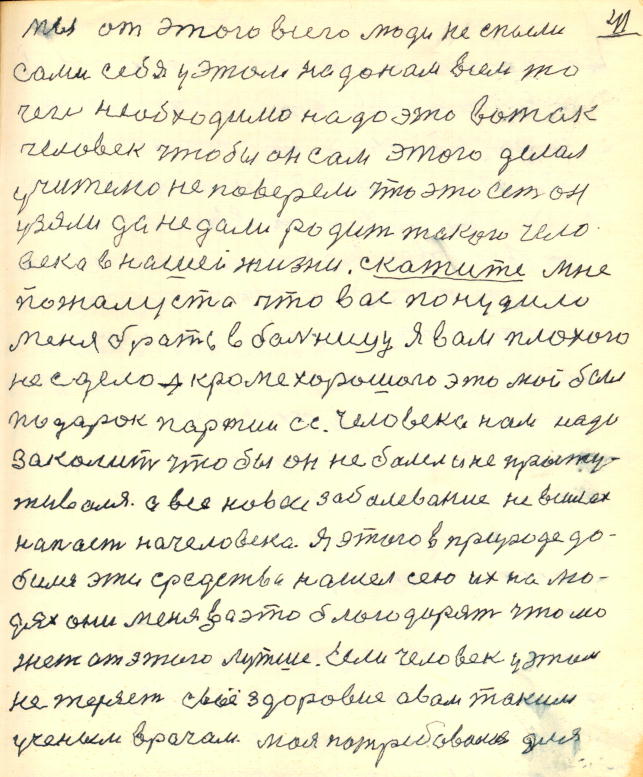 41
мы от этого всего люди не спасли
сами себя у этом надо нам всем то
чего необходимо надо это вот так
человек чтобы он сам этого делал
учителю не поверели что это сет он
узяли да не дали родит такого чело
века в нашей жизни. скажите мне
пожалуста что вас понудило
меня брать в болницу я вам плохого
не сдело л кроме хорошого это мой был
подарок партии сс. Человека нам надо
заколит чтобы он не болел и не просту-
живался. а все новое заболевание не
напаст на человека. Я этого в природе до-
биля эти средства нашел сею их на лю-
дях они меня за это благодарят что мо
жет от этого лутше. Если человек у этом
не теряет своё здоровие а вам таким
ученым врачам моя потребовалос для